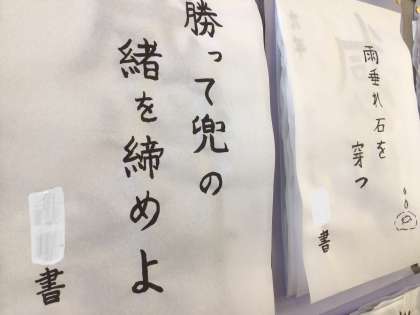 勝って兜の
緒を締めよ
書
雨垂れ石を
穿つ
書